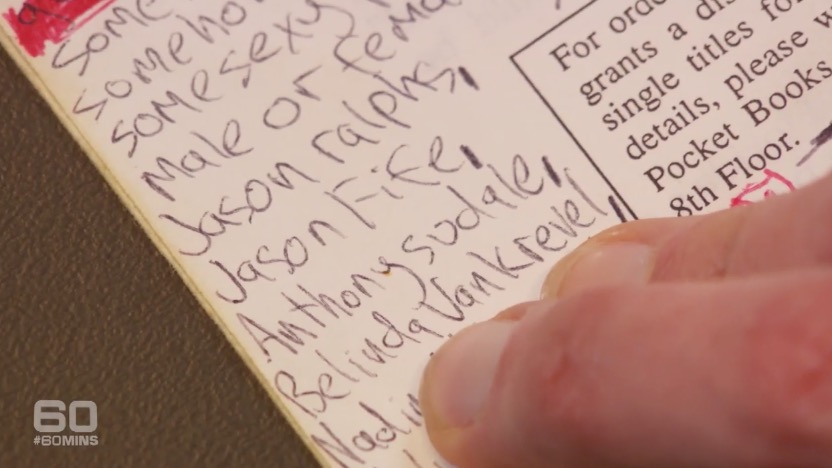 some
somehow
somesexy
Male or fema
Jason ralphs,
Jason Fife,
Anthony sudale,
Belinda Vankrevel,
Nadin
For orde
grants a dis
single titles fo
details, please w
Pocket Books
8th Floor.
60
#60MINS